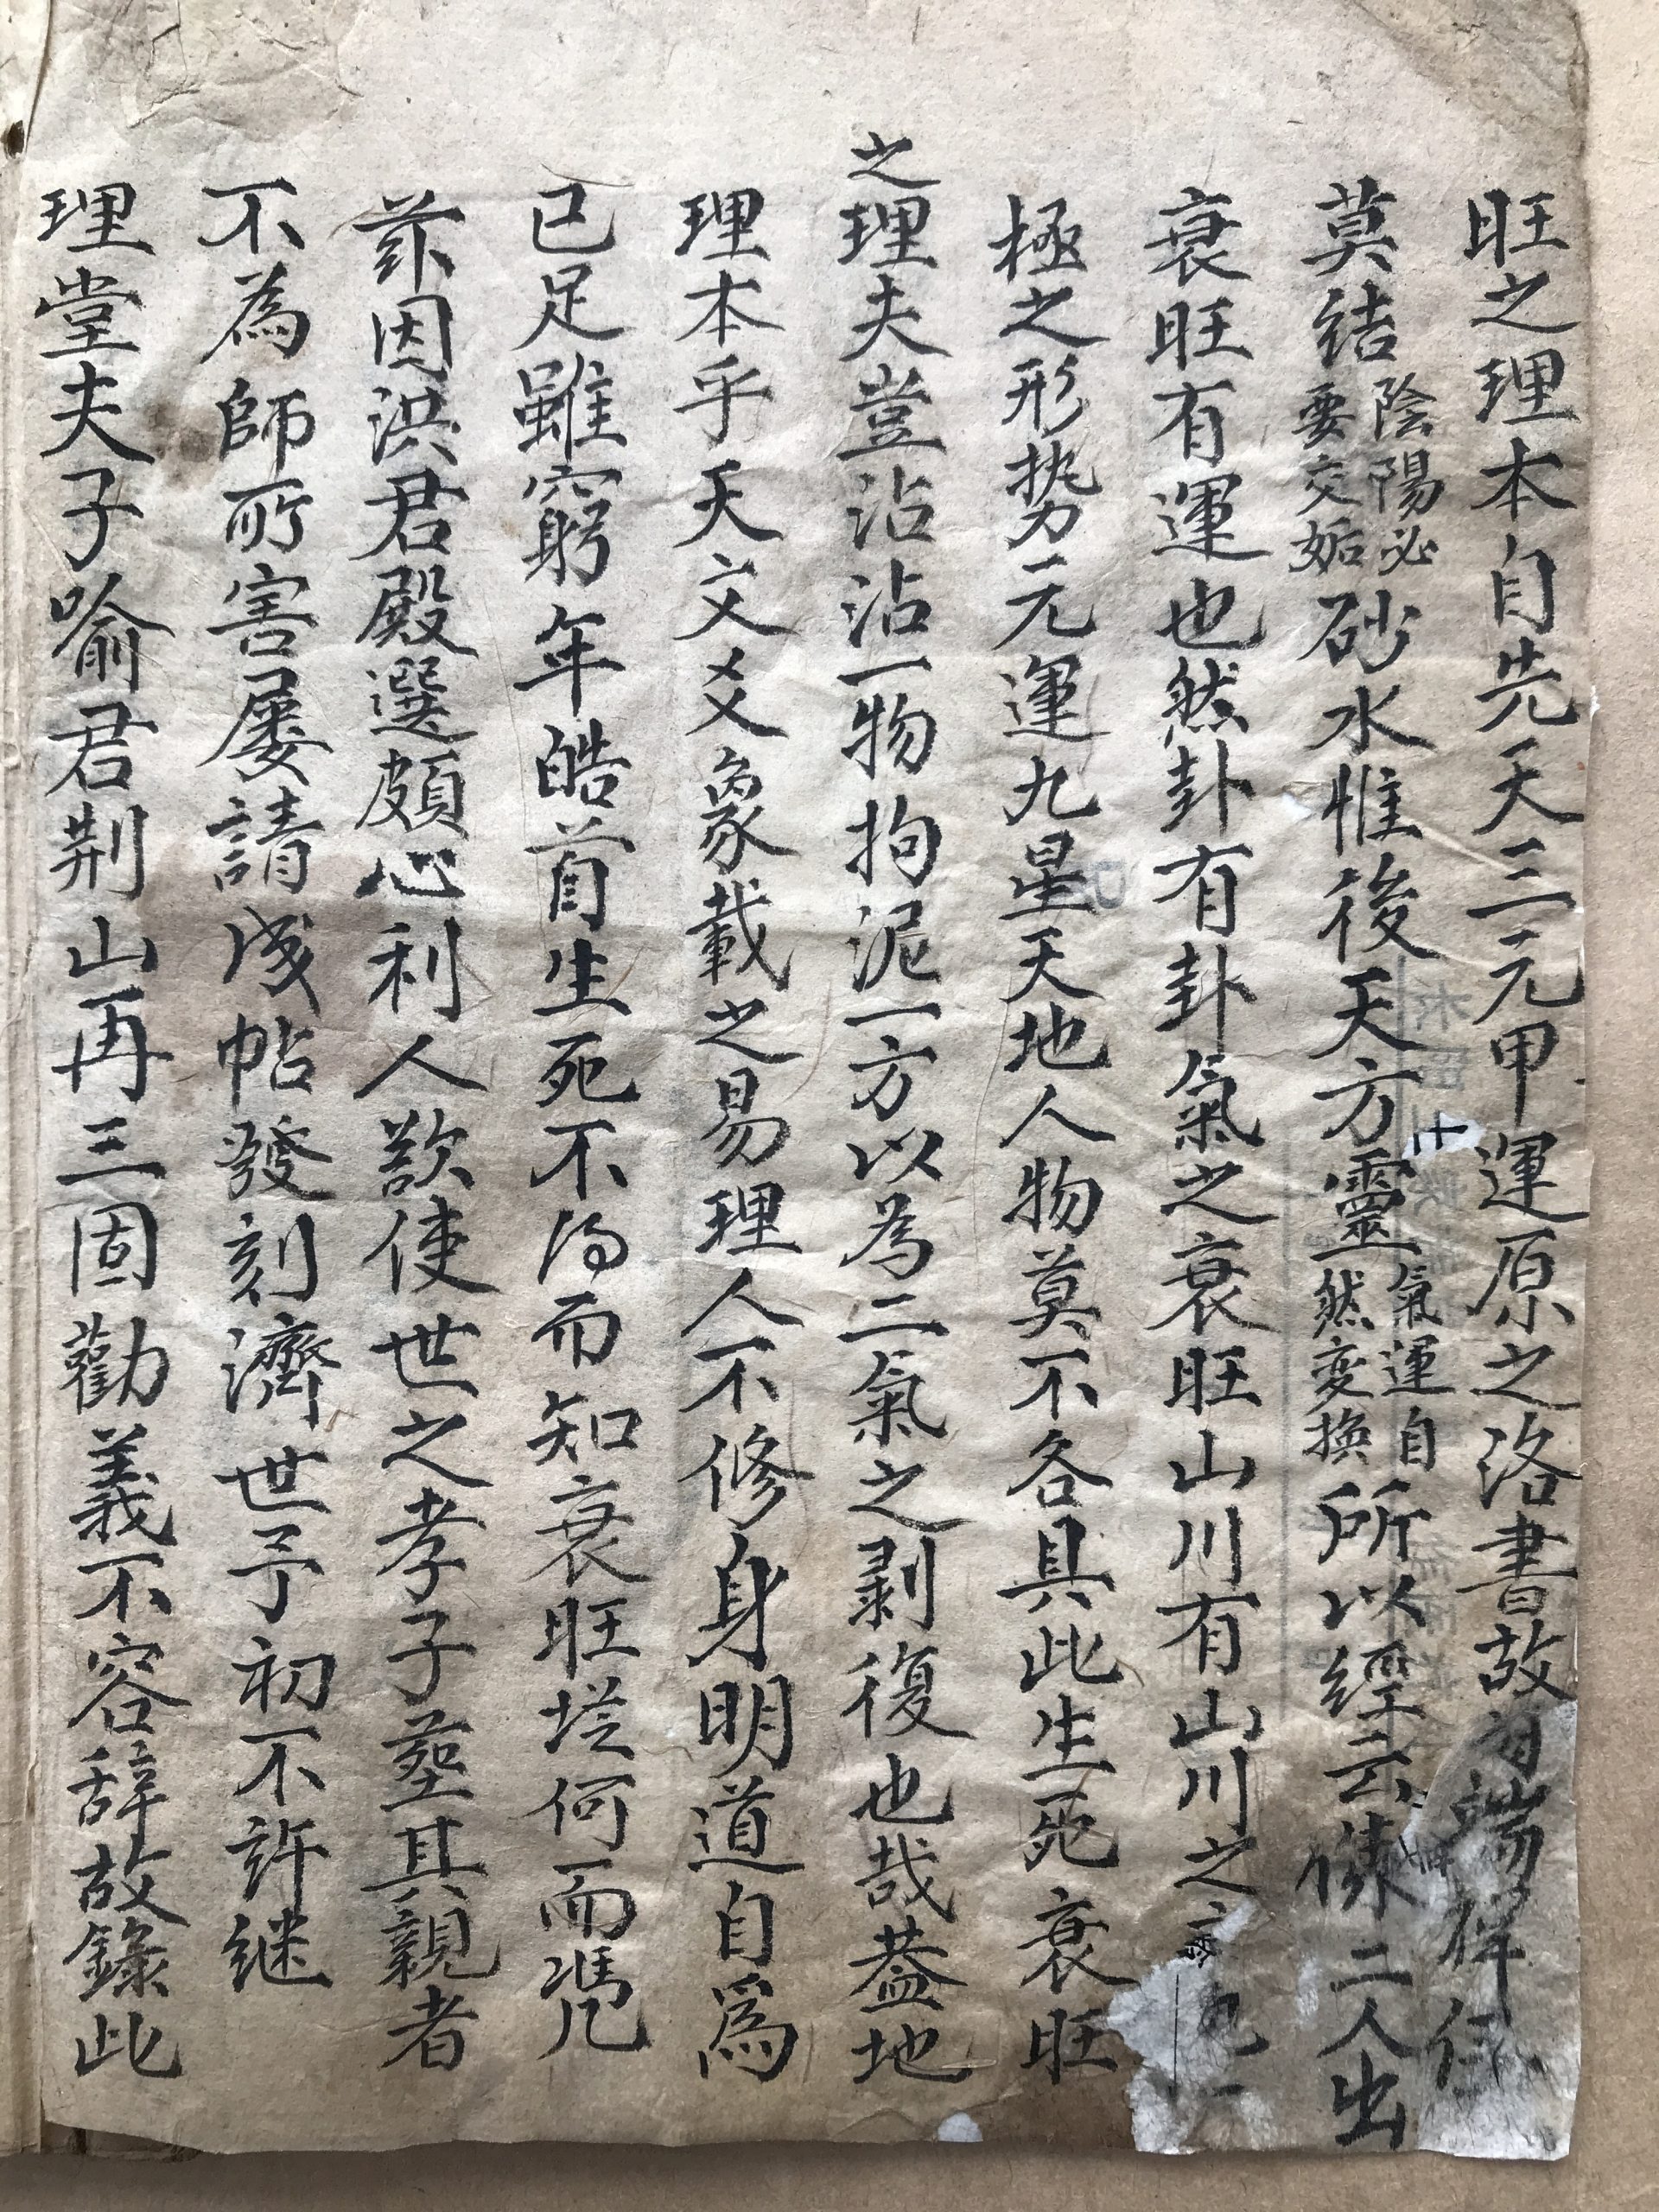 旺之理本自先天三元甲運原之洛書故有端倪任
莫結陰陽必要交姤砂水惟後天方靈氣運自然变換所以經云俵二人出
衰旺有運也然卦有卦氣之衰旺山川有山川之九一
極之形势元運九星天地人物莫不各具此生死衰旺
之理夫豈沾沾一物拘泥一方以為二氣之剥復也哉蓋地
理本乎天文爻象載之易理人不修身明道自爲
已足雖窮年皓首生死不得而知衰旺從何而慿
茲因洪君殿選頗心利人欲使世之孝子塟其親者
不為師所害屢請成帖發刻濟世予初不許继
理堂夫子喻君荆山再三固勸義不容辞故錄此